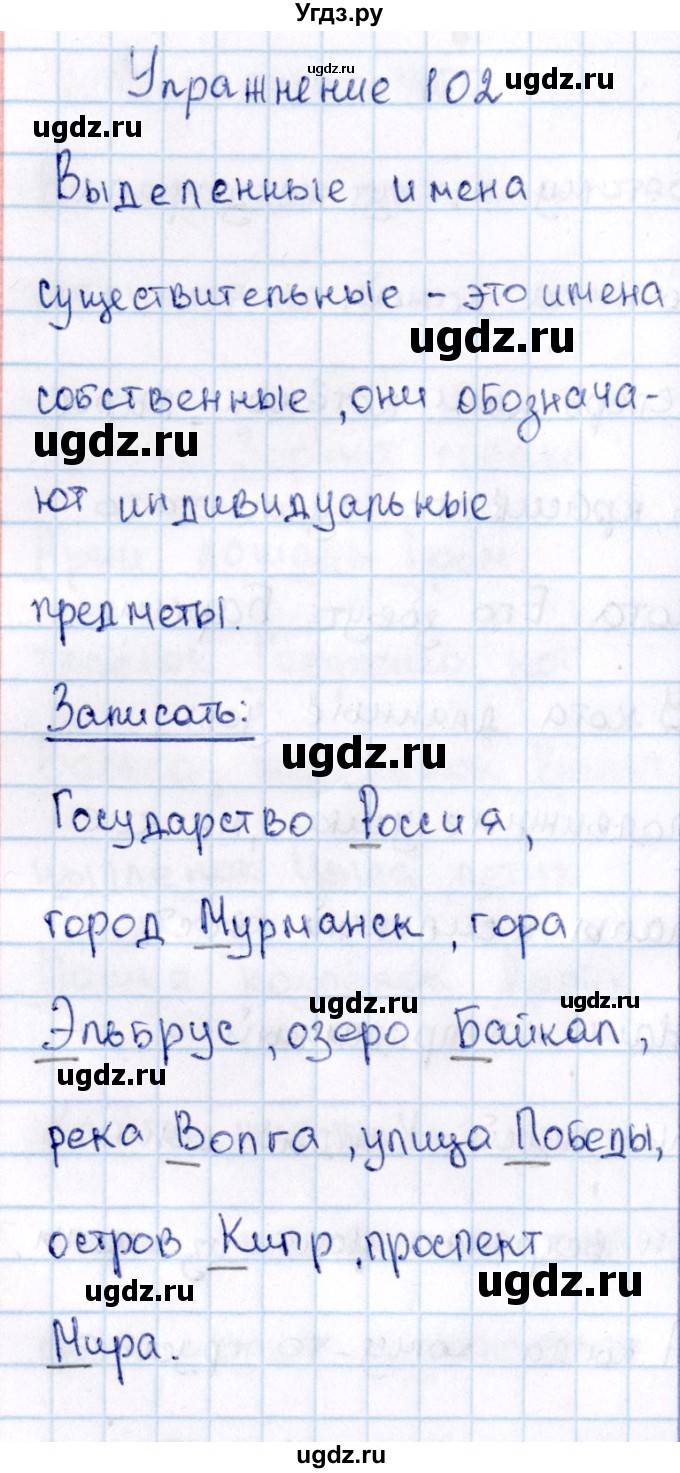 Угдз.ру
ugdz.ru
Упражнение 102
ugdz.ru
ugdz.ru
Выделенные имена
существительные – это имена
ugdz.ru
собственные, они обознача-
ugdz.ru
ют индивидуальные
предметы.
Записать:
ugdz.ru
Государство Россия,
город Мурманск, гора
ugdz.ru
ugdz.ru
Эльбрус, озеро Байкал,
ugdz.ru
река Волга, улица Победы,
остров Кипр, проспект
ugdz.ru
ugdz.ru
Мира.
ugdz.ru